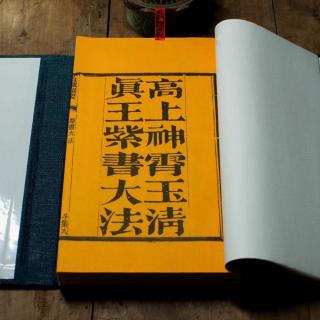 高上神霄玉清
眞王紫書大法